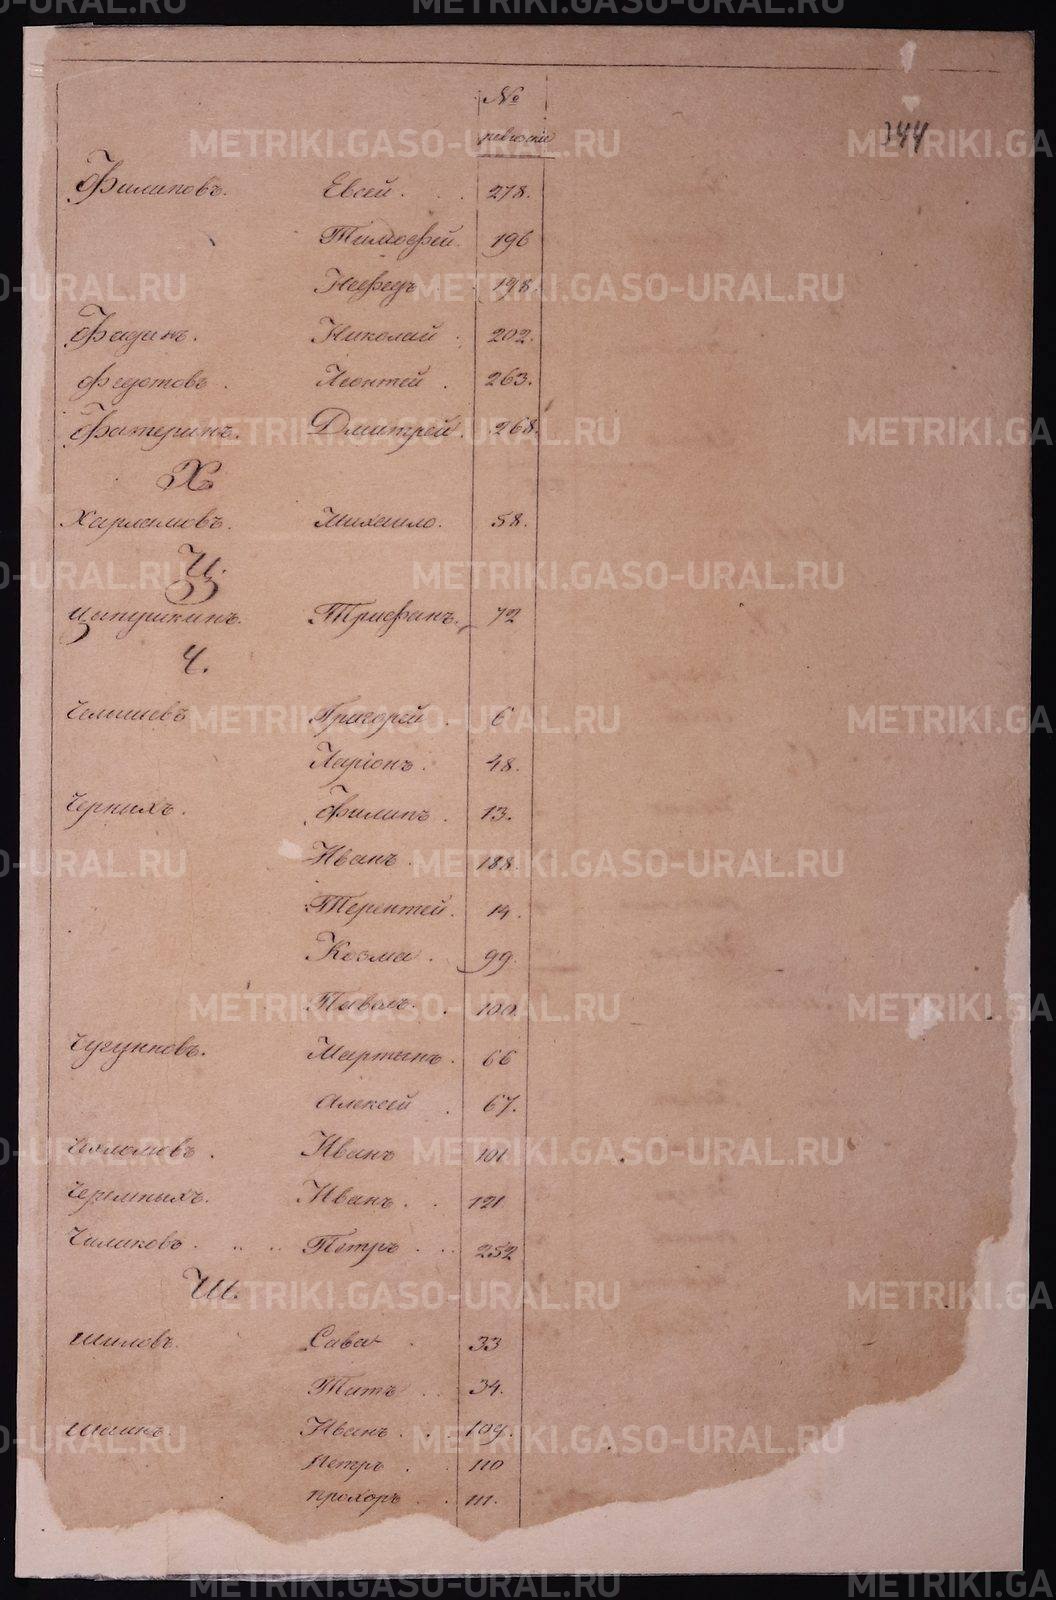 №
ревизскіе
344
Филиповъ. Евсей. 278.
Тимофей. 196
Нефедъ. 198.
Фадинъ. Николай. 202.
Федотовъ. Леонтей. 263.
Фатеринъ. Дмитрей. 268.
Х
Харламовъ. Михаило. 58.
Ц.
Цыпушкинъ. Трифанъ. 72
Ч.
Челышевъ Григорей. 6
Ларіонъ. 48.
Черныхъ. Филипъ. 13.
Иванъ. 188.
Терентей. 14.
Козма. 99.
Павелъ. 100.
Чугунковъ. Мартынъ. 66
Алексей. 67.
Чехломовъ. Иванъ 101
Черемныхъ. Иванъ. 121
Чиликовъ. Петръ. 252
Ш.
Шиловъ. Сава. 33
Титъ. 34.
Шаинъ. Иванъ. 109.
Петръ. 110
Прохоръ. 111.
METRIKI.GASO-URAL.RU